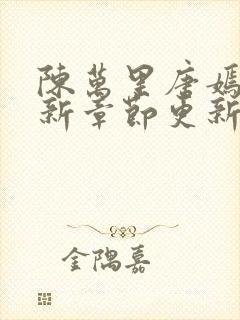 陳萬里唐嫣
新章節更新
金隅嘉